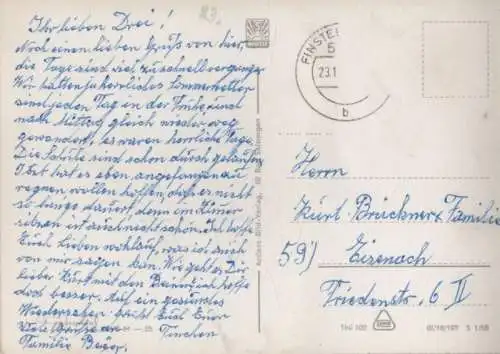 Ihr lieben Drei!
Noch einen lieben Gruß von hier,
die Tage sind viel zu schnell vergangen
Wir hatten so herrliches Sommerwetter
sind jeden Tag in der Frühe und
nach Mittag gleich wieder weg
gewandert, es waren herrliche Tage.
Die Schuhe sind schon durch gelaufen
Jetzt hat es eben angefangen zu
regnen wollen hoffen, daß es nicht
so lange dauert, denn im Zimmer
sitzen ist auch nicht schön. Ich hoffe
Euch Lieben wohlauf, was ich auch
von mir sagen kan. Wie geht es Dir
lieber Kurt mit den Beinen, ich hoffe
doch besser. Auf ein gesundes
Wiedersehen grüßt Euch Eure
Tinchen
Viele Grüße an
Familie
23.
FINSTE
5
23.1
b
Herrn
Kurt Brückner & Familie
59) Eisenach
Friedenstr. 6 II
Bild Verlag